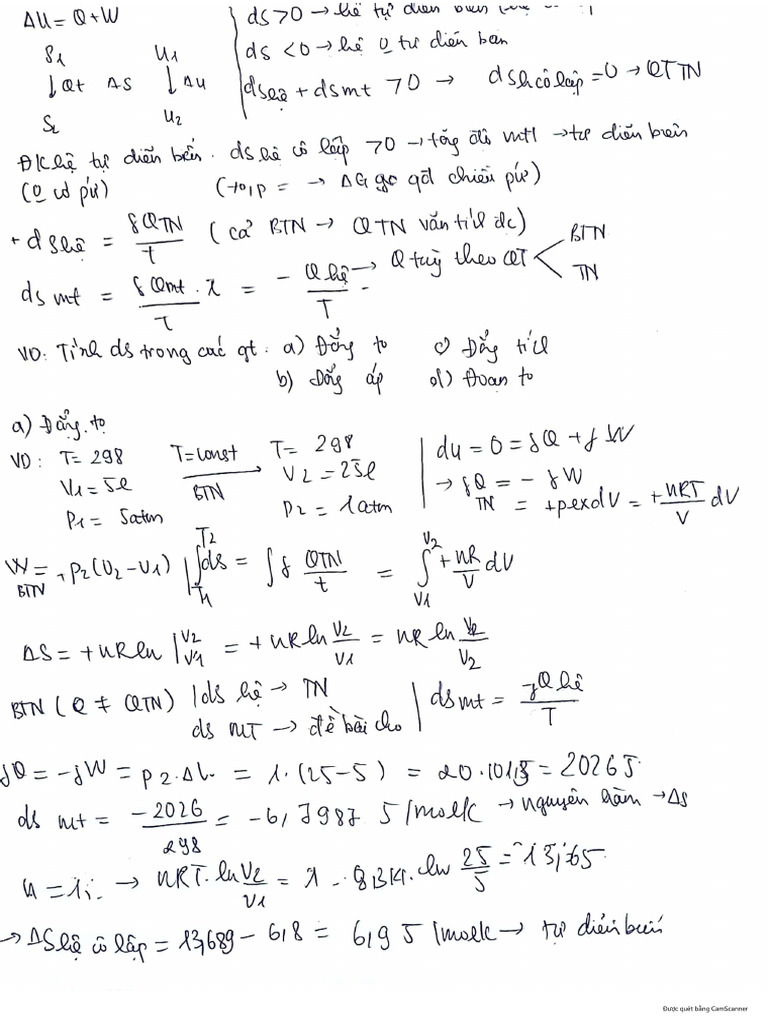 ΔU = Q + W
dS > 0 → hệ tự diễn biến
S₁ U₁ dS < 0 → hệ 0 tự diễn biến
↓ Qt ΔS ↓ ΔU dShệ + dSmt > 0 → dShcô lập = 0 → QTTN
S₂ U₂
ĐK hệ tự diễn biến. dShệ cô lập > 0 → tổng → tự diễn biến
(0 có pứ) (to, p = → ΔG qđ chiều pứ)
+ dShệ = δQTN / T (cả BTN → QTN vẫn tính đc)
dSmt = δQmt / T = - Qhệ / T → Q tuỳ theo QT < BTN TN
VD: Tính dS trong các qt: a) Đẳng to c) Đẳng tích
b) Đẳng áp d) Đoạn to
a) Đẳng to
VD: T = 298 T = const T = 298 du = 0 = δQ + δW
V₁ = 5l → BTN V₂ = 25l → δQ = - δW
P₁ = 5atm P₂ = 1atm TN = +pexdV = +nRT/V dV
W BTN = + P₂(V₂ - V₁) | ∫T₁T₂ dS = ∫ δ QTN/t = ∫V₁V₂ + nR/V dV
ΔS = + nR ln |V₁V₂ = + nR ln V₂/V₁ = nR ln V₂/V₂
BTN (Q ≠ QTN) | dS hệ → TN | dSmt = δQhệ / T
dS MT → đề bài cho
δQ = -δW = P2.ΔV = 1.(25-5) = 20.101,3 = 2026 J
dS mt = -2026/298 = -6,7987 J/molK → nguyên hàm → ΔS
n = 1 → nRT.ln V₂/V₁ = 1 . 8,314. ln 25/5 =
→ ΔS hệ cô lập = 13,689 - 6,8 = 6,9 J/molK → tự diễn biến
Được quét bằng CamScanner